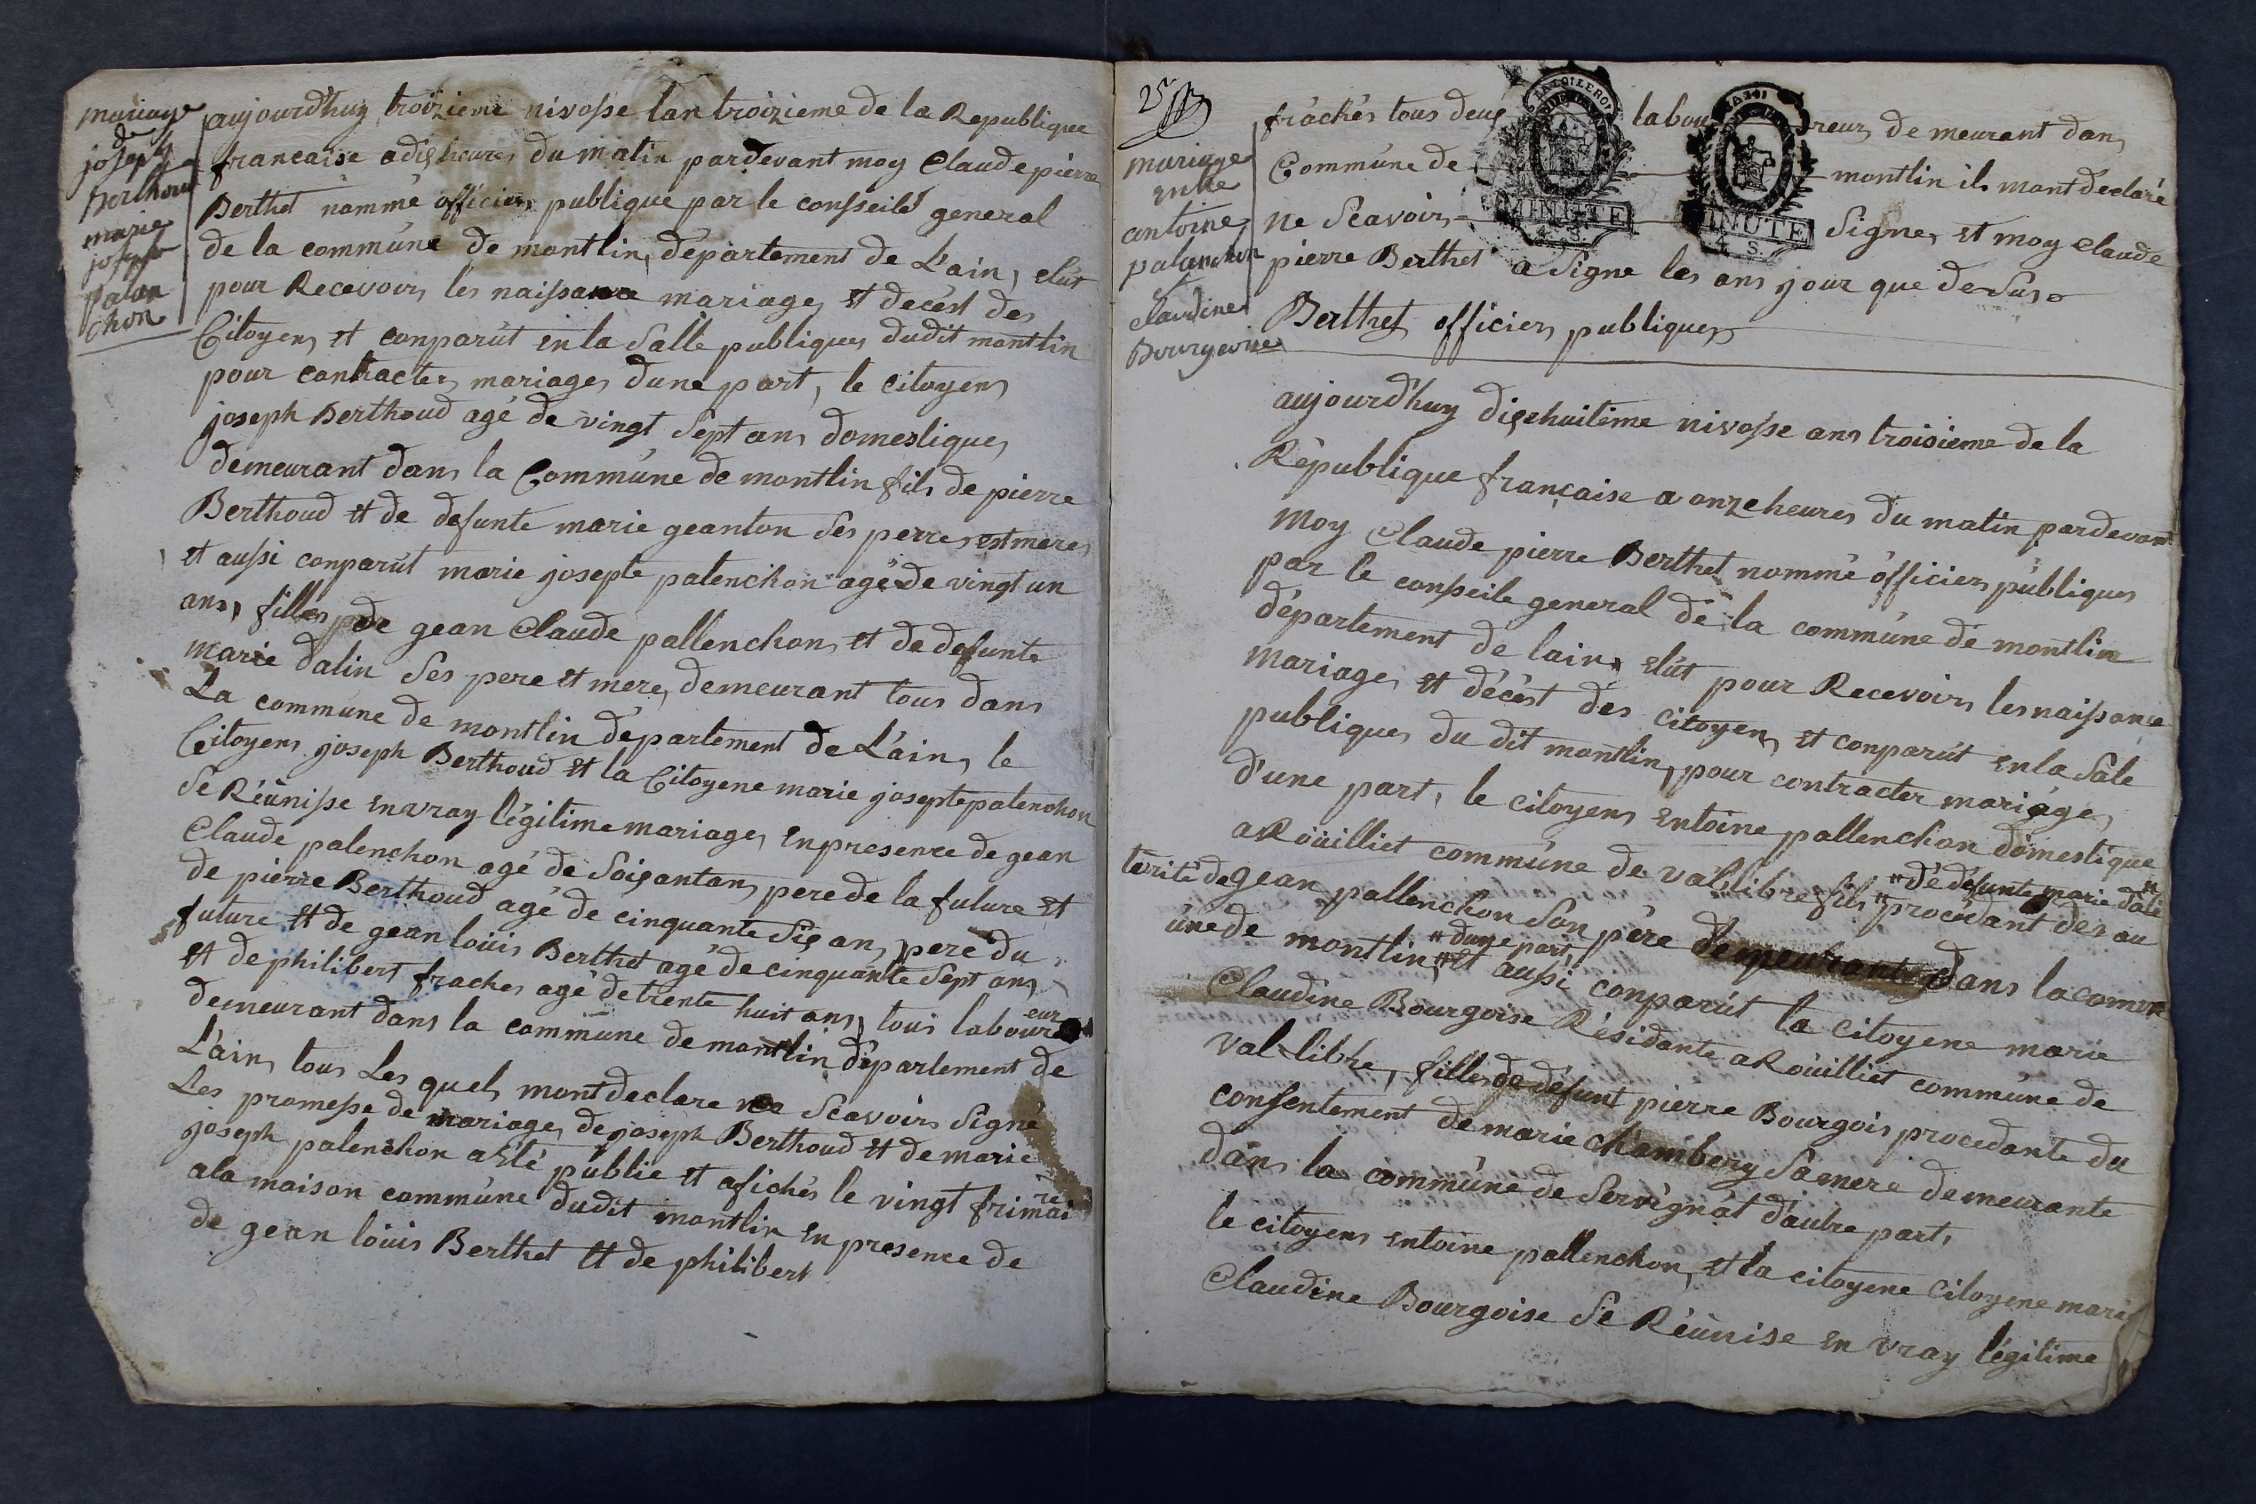 mariage
de
joseph
Berthoud
marie
josepte
palan
chon
aujourd'huy troizieme nivosse lan troizieme de la Republique
francaise a dix heures du matin pardevant moy Claude pierre
Berthet nommé officiers publique par le consseilé general
de la commúne de montlin, département de L'ain, elút
pour Recevoirs les naissance mariages et decést des
Citoyens et conparút en la Salle publiques dudit montlin
pour contracters mariages d'une part, le citoyens
joseph Berthoud agé de vingt Sept ans domestiques
demeurant dans la Commúne de montlin fils de pierre
Berthoud et de defunte marie geanton Ses perres et meres
et aussi conparút marie josepte palenchon agé de vingt un
ans, filles de gean Claude pallenchons et de defunte
marie dalin Ses pere et mere, demeurant tous dans
La commúne de montlin département de L'ain, le
Citoyens joseph Berthoud et la Citoyene marie josepte palenchon
Sé Réúnisse en vray légitime mariages en presence de gean
Claude palenchon agé de Soixantans pere de la future et
de pierre Berthoud agé de cinquante Six ans pere du
future et de gean loüis Berthet agé de cinquante Sept ans
et de philibert fraches agé de trente huit ans, tous laboureur
demeurant dans la commúne de montlin département de
L'ain, tous Les quels mont declare ne Scavoirs Signé
Les promesse de mariages de joseph Berthoud et de marie
joseph palenchon a été publie et afichés le vingt frimaire
a la maison commúne dudit montlin en presence de
de gean loüis Berthet et de philibert
25
mariage
entre
antoine
palanchon
et
claudine
Bourgeoise
frachés tous deux laboureurs demeurant dans
Commúne de montlin ils mont déclaré
ne Scavoirs Signer et moy Claude
pierre Berthet a Signe les ans jour que de Súso
Berthet officiers publiques
MINUTE
4. S.
MINUTE
4. S.
aujourd'huy dixhuitime nivosse ans troisieme de la
République française a onze heures du matin pardevant
moy Claude pierre Berthet nommé officiers públiques
par le conseile general de la commúne de montlin
département de lain, elút pour Recevoirs les naissance
mariages et décést des citoyens et conparút en la Sale
publiques du dit montlin, pour contracter mariéges
d'une part, le citoyens entoine pallenchon domestique
a Roüilliet commúne de val libre fils " procédant de s au
" dé défunte marie dali "
torité de gean pallenchon Son père demeurant dans la comm
úne de montlin " et aussi conparút la citoyene marie
" dune part,
Claudine Bourgoise Résidante a Roüilliet commúne de
val libre, filles de défunt pierre Bourgois procedante du
consentement de marie chambery Sa mere demeurante
dans la commúne de Servignat d'autre part,
le citoyens entoine pallenchon, et la citoyene citoyene marie
Claudine Bourgoise Sé Réúnise en vray légitime